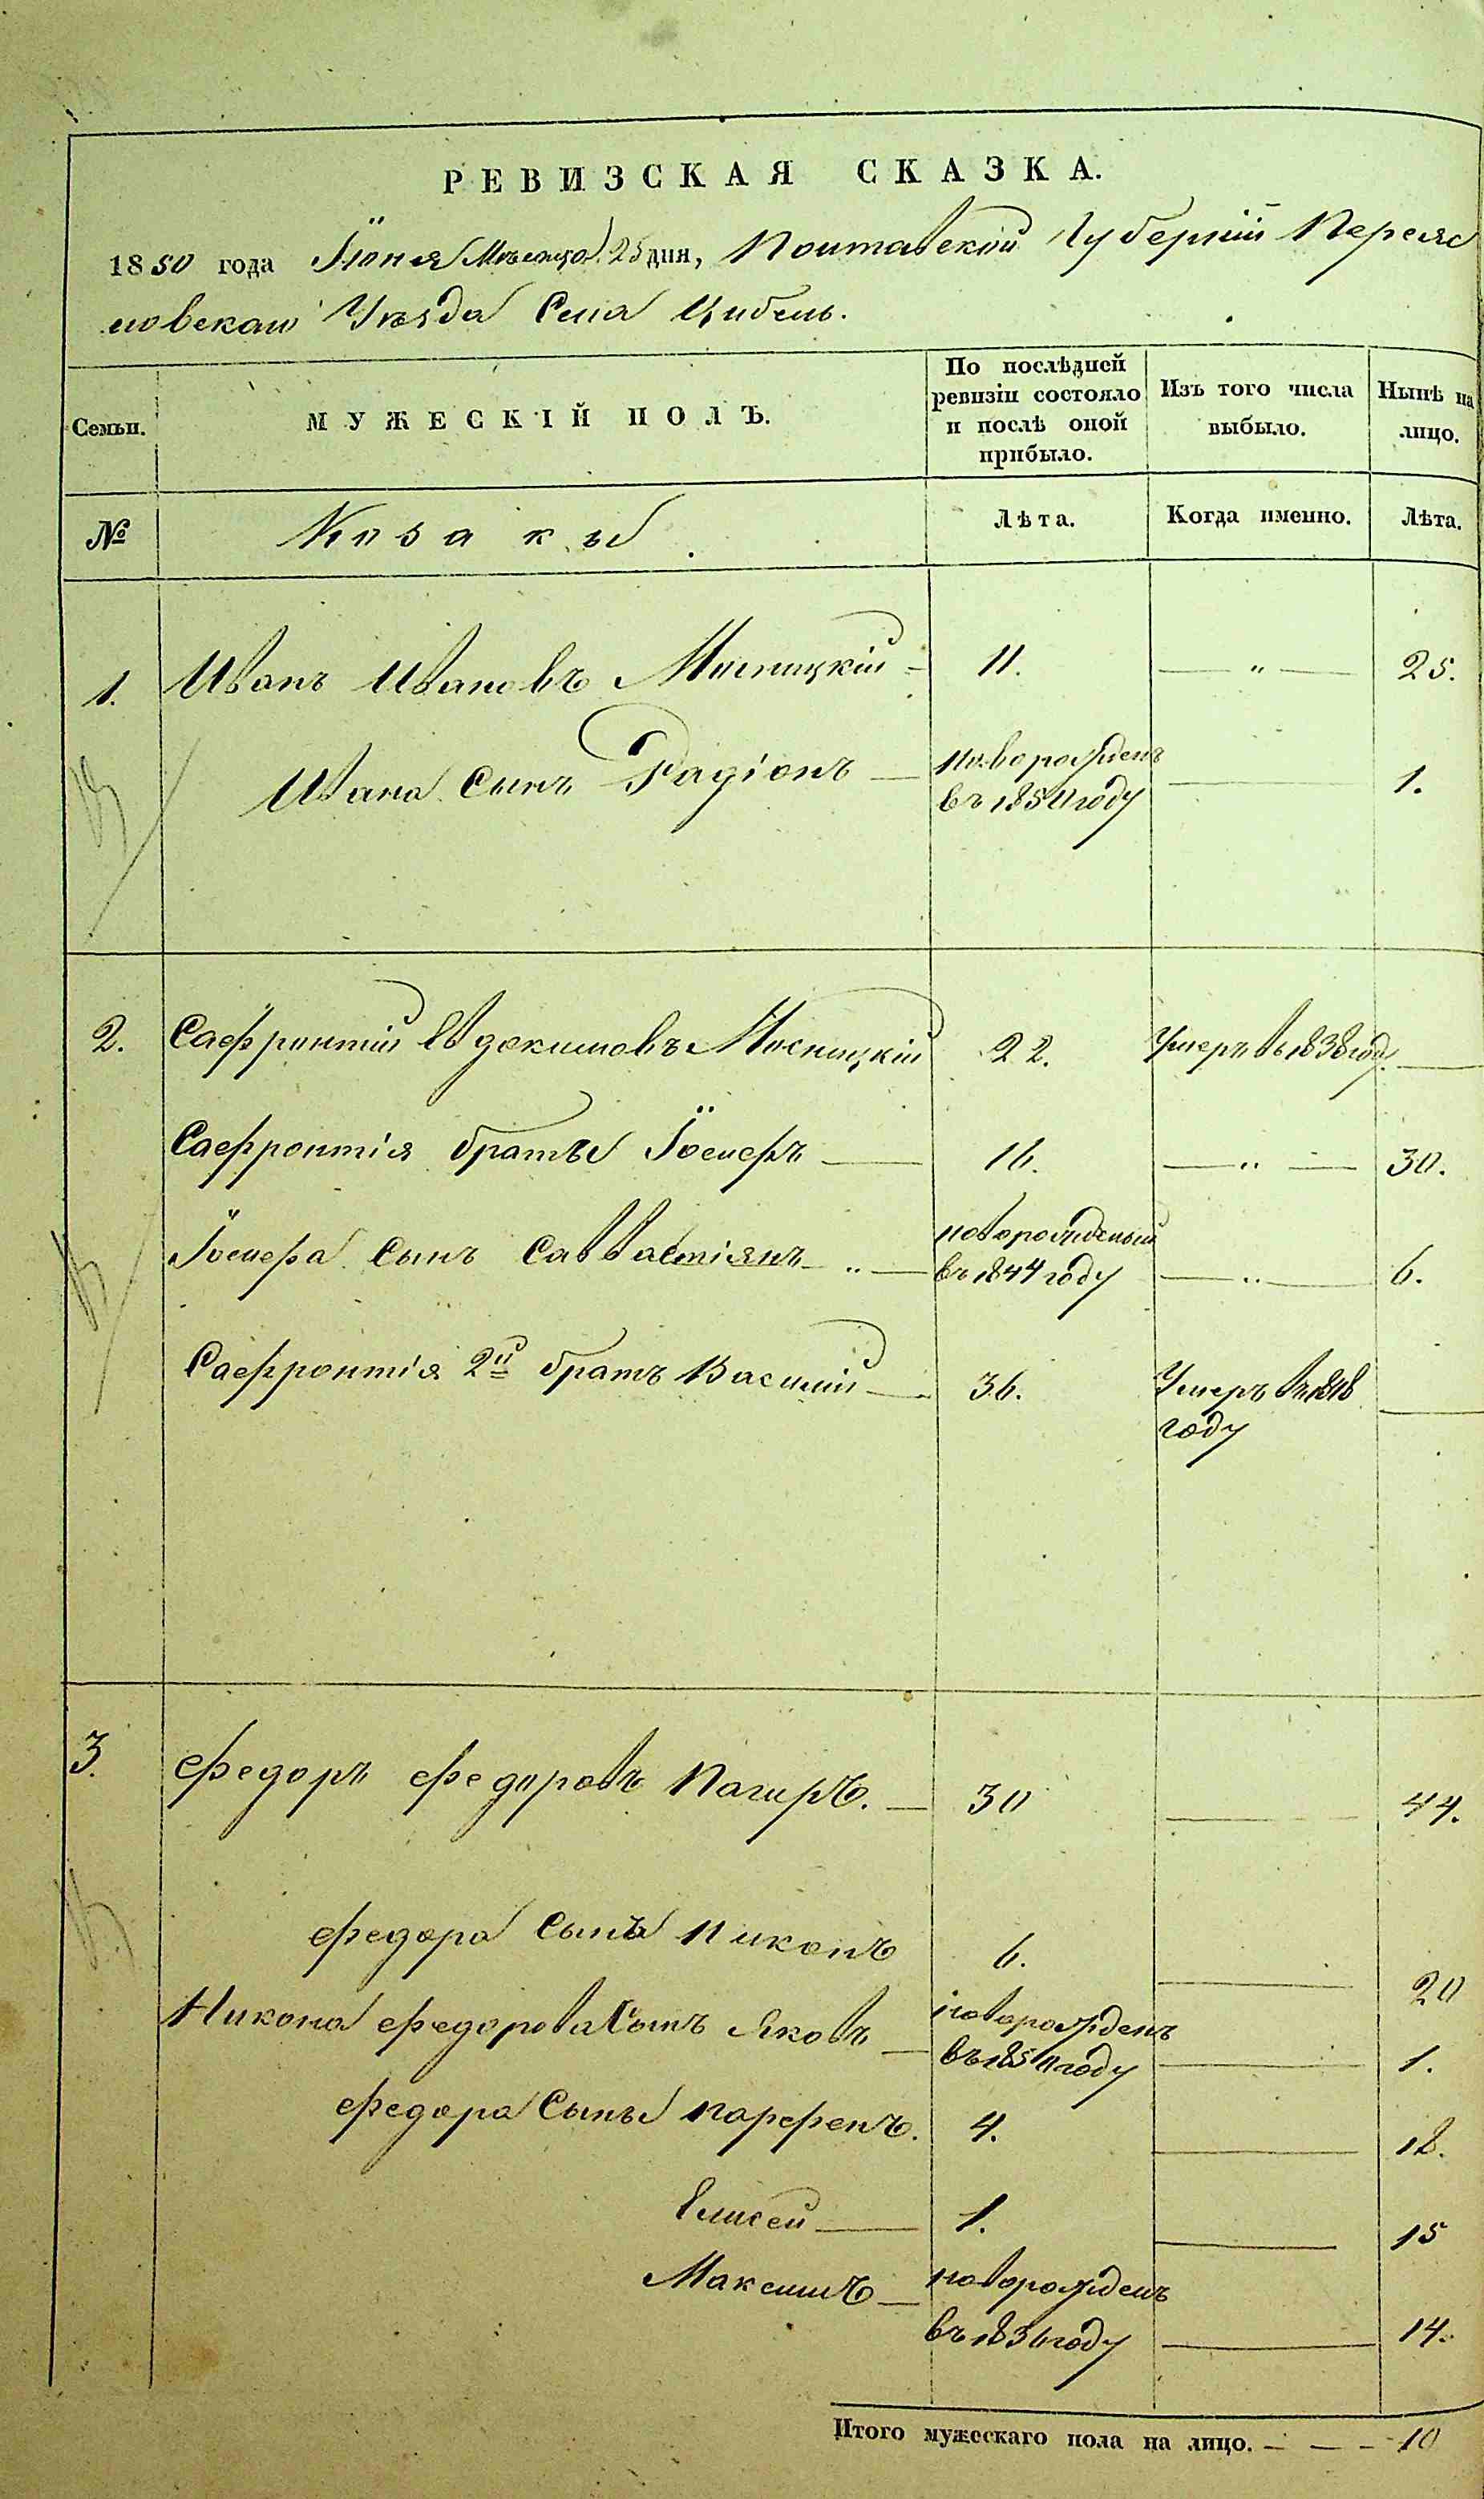 РЕВИЗСКАЯ СКАЗКА.
1850 года Іюня Мѣсяца 25 дня, Полтавской Губерніи Переяс
ловскаго Уѣзда Села Цибель.
Семьи.
МУЖЕСКІЙ ПОЛЪ.
По послѣдней ревизіи состояло и послѣ оной прибыло.
Изъ того числа выбыло.
Нынѣ на лицо.
№
Козаки
Лѣта.
Когда именно.
Лѣта.
1. Иванъ Ивановъ Мосницкій 11. — „ — 25.
Ивана Сынъ Радіонъ — новорожденъ въ 1850 году — 1.
2. Сафронтій Евдокимовъ Мосницкій 22. Умеръ въ 1838 год. —
Сафронтія братъ Іосифъ — 16. — „ — 30.
Іосифа Сынъ Саввастіянъ — „ — новорожденный въ 1844 году — „ — 6.
Сафронтія 2й братъ Василій — 36. Умеръ въ 1848 году —
3. Федоръ Федоровъ — 30 — 44.
Федора Сынъ Никонъ 6. — 20
Никона Федорова Сынъ Яковъ — новорожденъ въ 1850 году — 1.
Федора Сынъ Парфенъ. 4. — 18.
Елисей — 1. — 15
Максимъ — новорожденъ въ 1836 году — 14.
Итого мужескаго пола на лицо. — — — 10